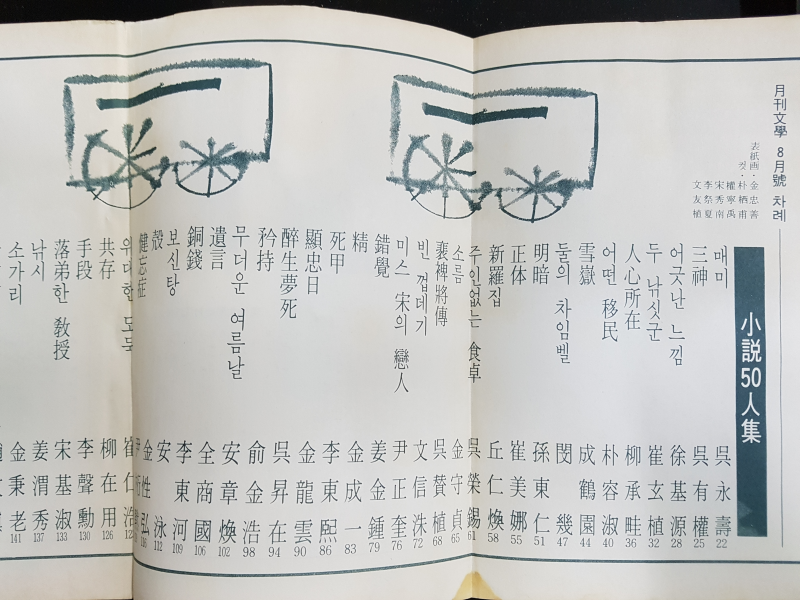 月刊文學 8月號 차례
表紙画・金忠善
컷・朴栖甫
權寧禹
宋秀南
李祭夏
文友植
小説50人集
매미 吳永壽 22
三神 吳有權 25
어긋난 느낌 徐基源 28
두 낚싯군 崔玄植 32
人心所在 柳承畦 36
어떤 移民 朴容淑 40
雪嶽 成鶴園 44
둘의 차임벨 閔幾 47
明暗 孫東仁 51
正体 崔美娜 55
新羅집 丘仁煥 58
주인없는 食卓 吳榮錫 61
소름 金守貞 65
裵裨將傳 吳賛植 68
빈 껍데기 文信洙 72
미스 宋의 戀人 尹正奎 76
錯覺 姜金鍾 79
精 金成一 83
死甲 李東熙 86
顯忠日 金龍雲 90
醉生夢死 吳昇在 94
矜持 兪金浩 98
무더운 여름날 安章煥 102
遺言 全商國 106
銅錢 李東河 109
보신탕 安泳 112
殼 金性弘 116
健忘症
위대한 崔仁浩
共存 柳在用 126
手段 李聲勳 130
落弟한 敎授 宋基淑 133
낚시 姜渭秀 137
소가리 金秉老 141